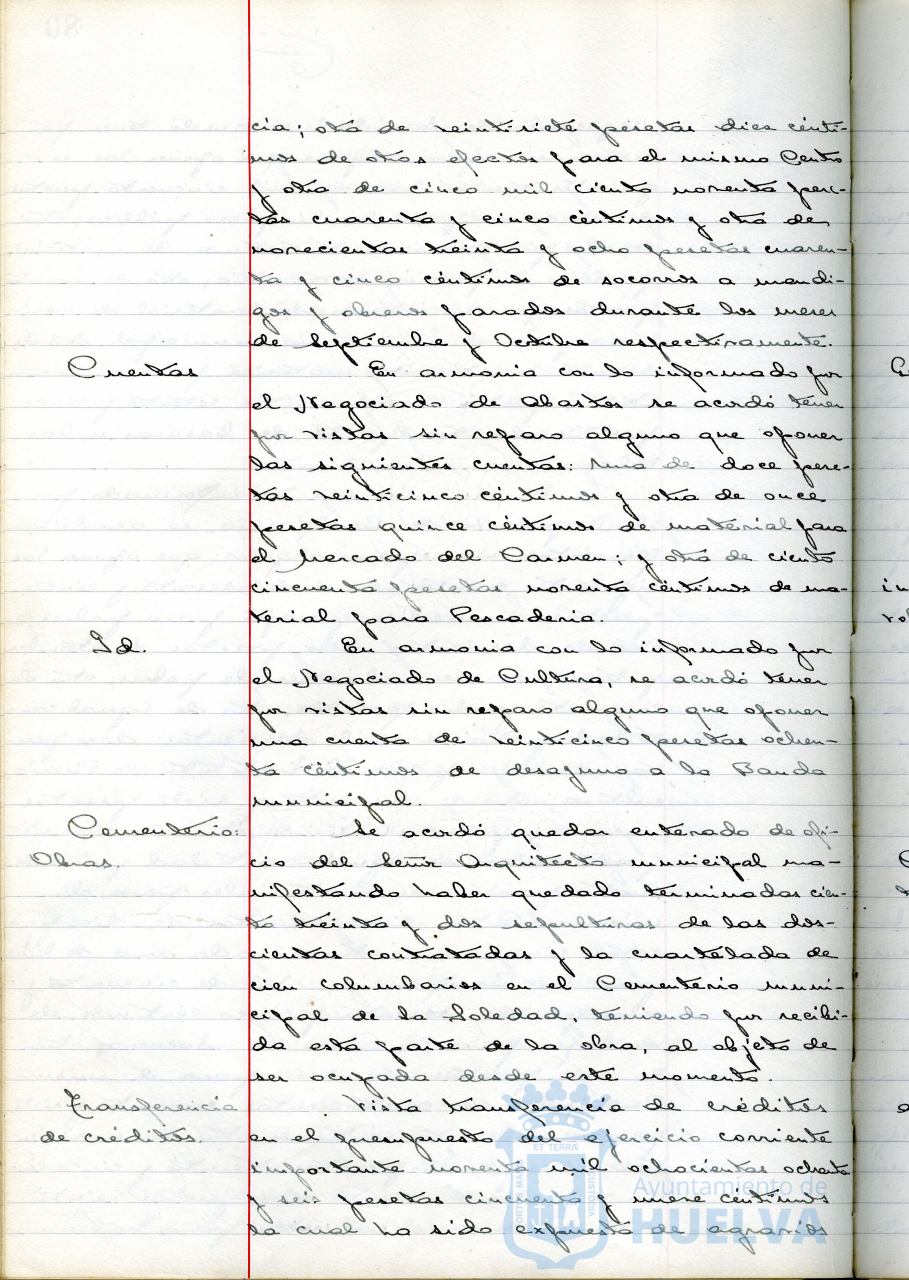 cia; otra de veintisiete pesetas diez cénti-
mos de otros efectos para el mismo Centro
y otra de cinco mil ciento noventa pese-
tas cuarenta y cinco céntimos y otra de
novecientas treinta y ocho pesetas cuaren-
ta y cinco céntimos de socorros a mendi-
gos y obreros parados durante los meses
de Septiembre y Octubre respectivamente.
Cuentas En armonia con lo informado por
el Negociado de Abastos se acordó tener
por vistas sin reparo alguno que oponer
las siguientes cuentas: Una de doce pese-
tas veinticinco céntimos y otra de once
pesetas quince céntimos de material para
el Mercado del Carmen; y otra de ciento
cincuenta pesetas noventa céntimos de ma-
terial para Pescaderia.
Id. En armonia con lo informado por
el Negociado de Cultura, se acordó tener
por vistas sin reparo alguno que oponer
una cuenta de veinticinco pesetas ochen-
ta céntimos de desayuno a la Banda
municipal.
Cementerio: Se acordó quedar enterado de ofi-
Obras. cio del Señor Arquitecto municipal ma-
nifestando haber quedado terminadas cien-
to treinta y dos sepulturas de las dos-
cientas contratadas y la cuartelada de
cien columbarios en el Cementerio muni-
cipal de la Soledad, teniendo por recibi-
da esta parte de la obra, al objeto de
ser ocupada desde este momento.
Transferencia Vista transferencia de créditos
de créditos. en el presupuesto del ejercicio corriente
importante noventa mil ochocientas ochenta
y seis pesetas cincuenta y nueve céntimos
la cual ha sido expuesta de agravios
Ayuntamiento de
HUELVA